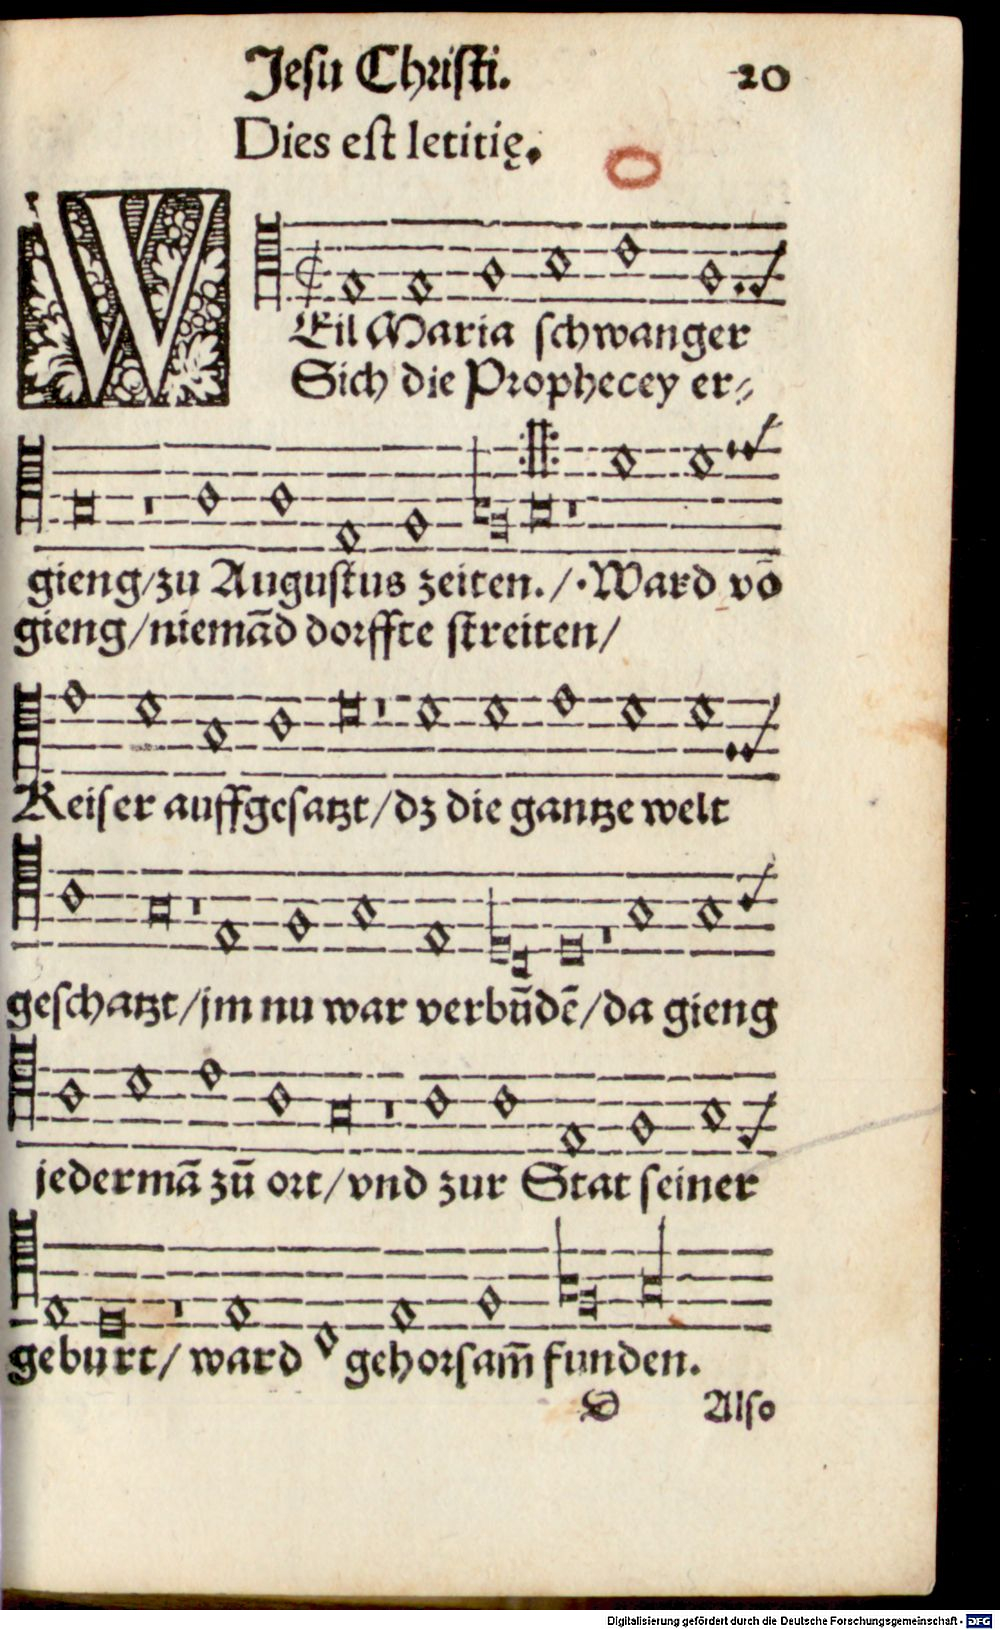 Jesu Christi. 20
Dies est letitię.
WEil Maria schwanger
Sich die Prophecey er⸗
gieng/zu Augustus zeiten./·Ward võ
gieng/niemãd dorffte streiten/
Keiser auffgesatzt/dz die gantze welt
geschatzt/jm nu war verbũdẽ/da gieng
jedermã zũ ort/vnd zur Stat seiner
geburt/ ward gehorsam̃ funden.
D Also
Digitalisierung gefördert durch die Deutsche Forschungsgemeinschaft - DFG